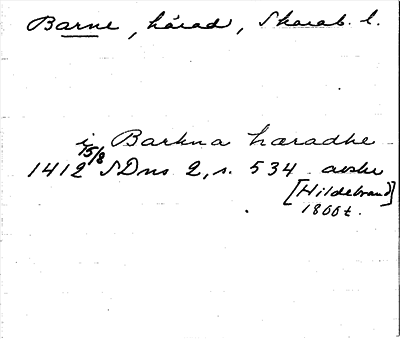 Barne, härad, Skarab. l.
i Barkna haradhe
1412 15/8 SDns 2, s. 534 avskr
[Hildebrand]
1800 t.